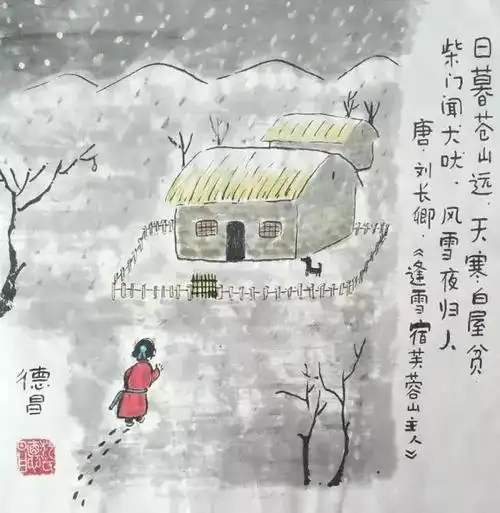 日暮苍山远.天寒白屋贫.
柴门闻犬吠.风雪夜归人
唐.刘长卿.《逢雪宿芙蓉山主人》
德昌